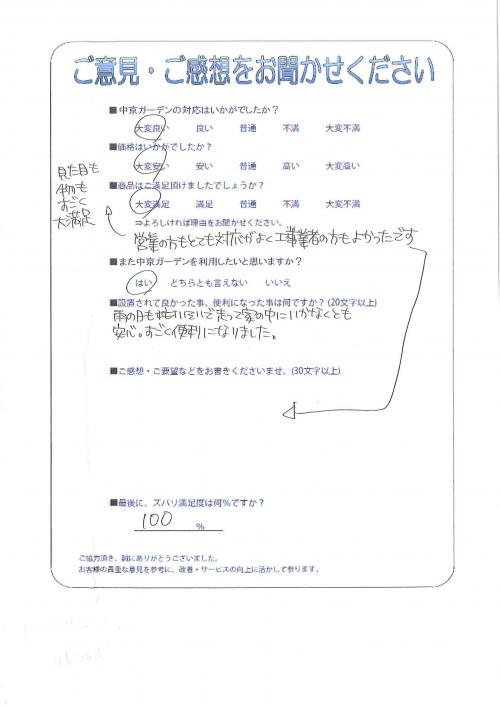 ご意見・ご感想をお聞かせください
■中京ガーデンの対応はいかがでしたか？
大変良い 良い 普通 不満 大変不満
■価格はいかがでしたか？
大変安い 安い 普通 高い 大変高い
■商品はご満足頂けましたでしょうか？
大変満足 満足 普通 不満 大変不満
⇒よろしければ理由をお聞かせください。
見た目も
物も
すごく
大満足
営業の方もとても対応がよく工事業者の方もよかったです
■また中京ガーデンを利用したいと思いますか？
はい どちらとも言えない いいえ
■設置されて良かった事、便利になった事は何ですか？(20文字以上)
雨の日も急いで走って家の中にいかなくとも
安心。すごく便利になりました。
■ご感想・ご要望などをお書きくださいませ。(30文字以上)
■最後に、ズバリ満足度は何%ですか？
100 %
ご協力頂き、誠にありがとうございました。
お客様の貴重な意見を参考に、改善・サービスの向上に活かして参ります。